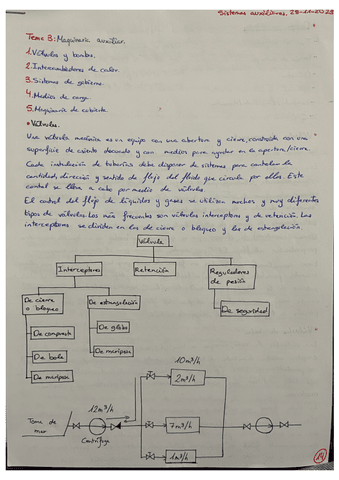 Sistemas auxiliares, 29-11-2023
Tema 3: Maquinaria auxiliar.
1. Válvulas y bombas.
2. Intercambiadores de calor.
3. Sistemas de gobierno.
4. Medios de carga.
5. Maquinaria de cubierta.
• Válvulas.
Una válvula mecánica es un equipo con una abertura y cierre, construida con una
superficie de asiento adecuado y con medios para ayudar en la apertura/cierre.
Cada instalación de tuberías debe disponer de sistemas para controlar la
cantidad, dirección y sentido de flujo del fluido que circula por ellas. Este
control se lleva a cabo por medio de válvulas.
El control del flujo de líquidos y gases se utilizan muchos y muy diferentes
tipos de válvulas. Los más frecuentes son válvulas interceptoras y de retención. Las
interceptores se dividen en las de cierre o bloqueo y las de estrangulación.
Válvula
Interceptores
Retención
Reguladores
de presión
De cierre
o bloqueo
De estrangulación
De seguridad
De compuerta
De globo
De bola
De mariposa
De mariposa
10m³/h
2m³/h
12m³/h
7m³/h
Toma de
mar
Centrífuga
1m³/h